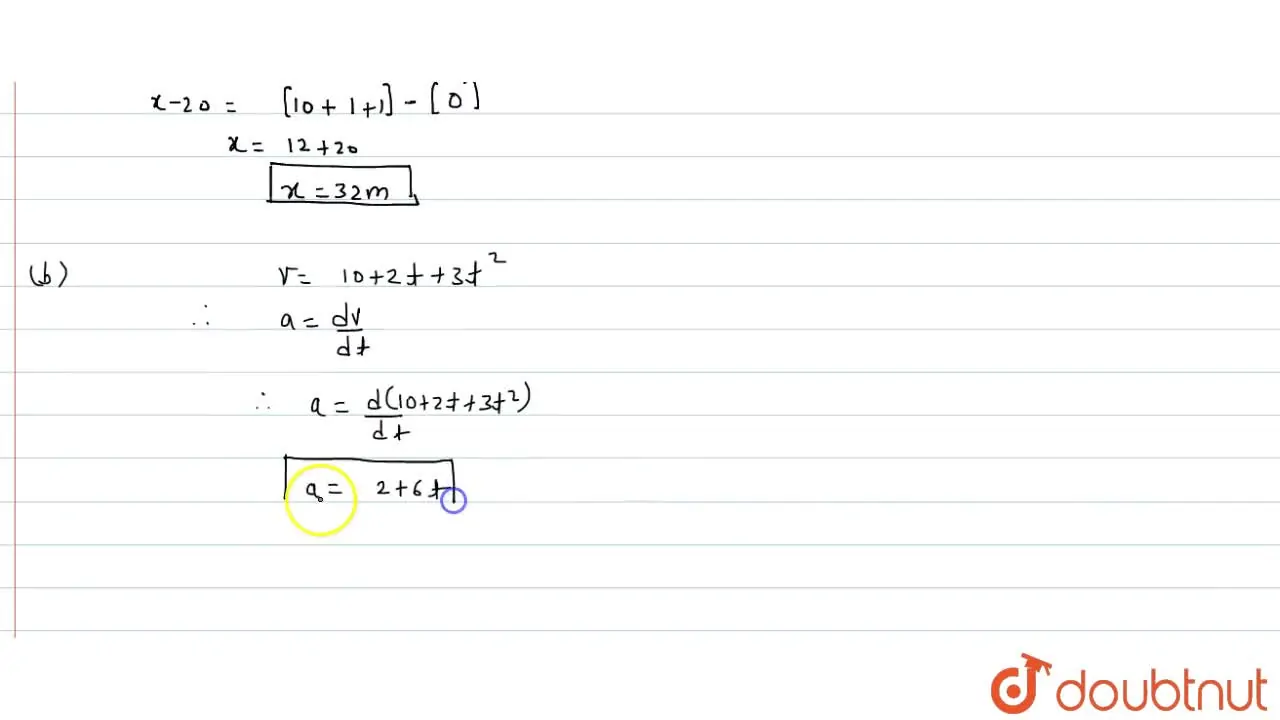 x-20 = [10+1+1] - [0]
x = 12+20
x = 32m
(b) v = 10+2t+3t²
∴ a = dv/dt
∴ a = d(10+2t+3t²)/dt
a = 2+6t
doubtnut